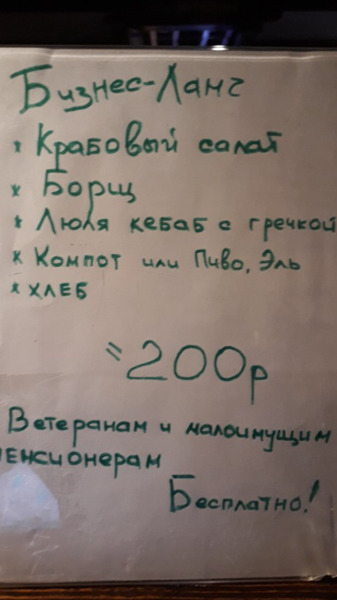 Бизнес-Ланч
* Крабовый салат
* Борщ
* Люля кебаб с гречкой
* Компот или Пиво, Эль
* ХЛЕБ
= 200р
Ветеранам и малоимущим
пенсионерам
Бесплатно!